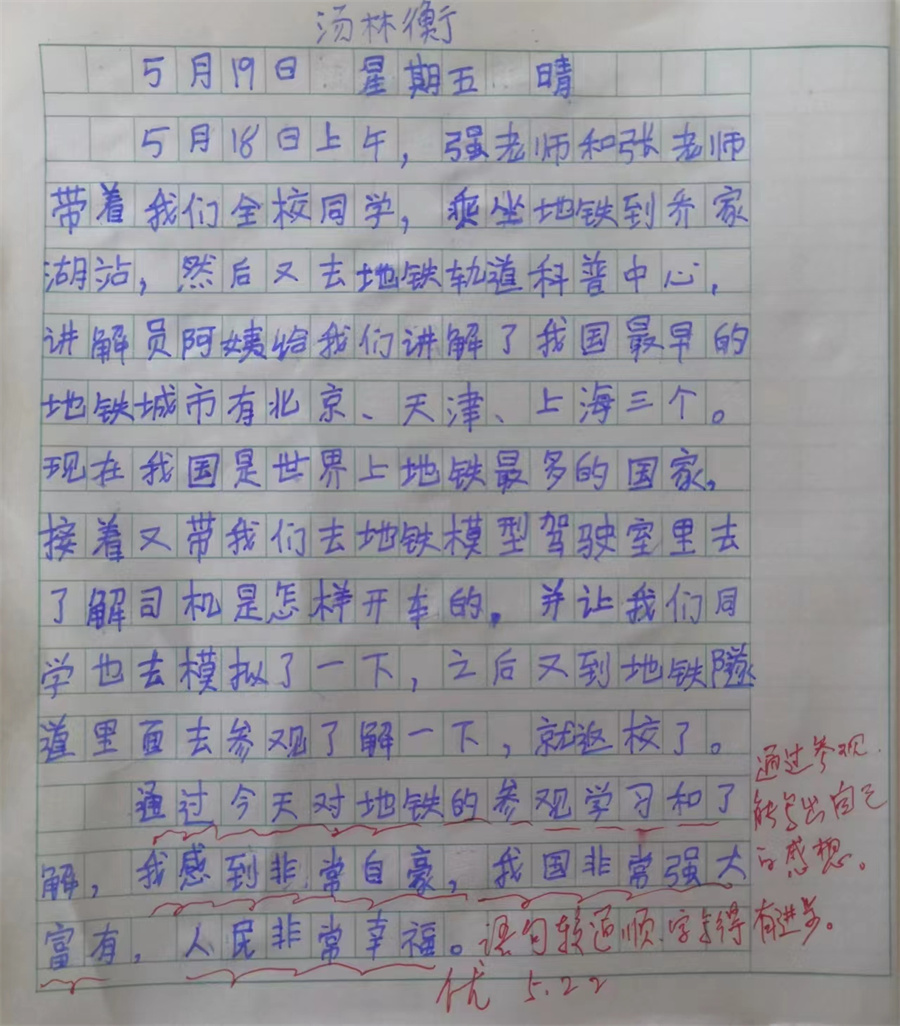 汤林衡
5月19日 星期五 晴
5月18日上午，强老师和张老师
带着我们全校同学，乘坐地铁到乔家
湖站，然后又去地铁轨道科普中心，
讲解员阿姨给我们讲解了我国最早的
地铁城市有北京、天津、上海三个。
现在我国是世界上地铁最多的国家，
接着又带我们去地铁模型驾驶室里去
了解司机是怎样开车的。并让我们同
学也去模拟了一下，之后又到地铁隧
道里面去参观了解一下，就返校了。
通过今天对地铁的参观学习和了
解，我感到非常自豪，我国非常强大
富有，人民非常幸福。语句较通顺，字写得有进步。
通过参观，
能写出自己
的感想。
优 5.22